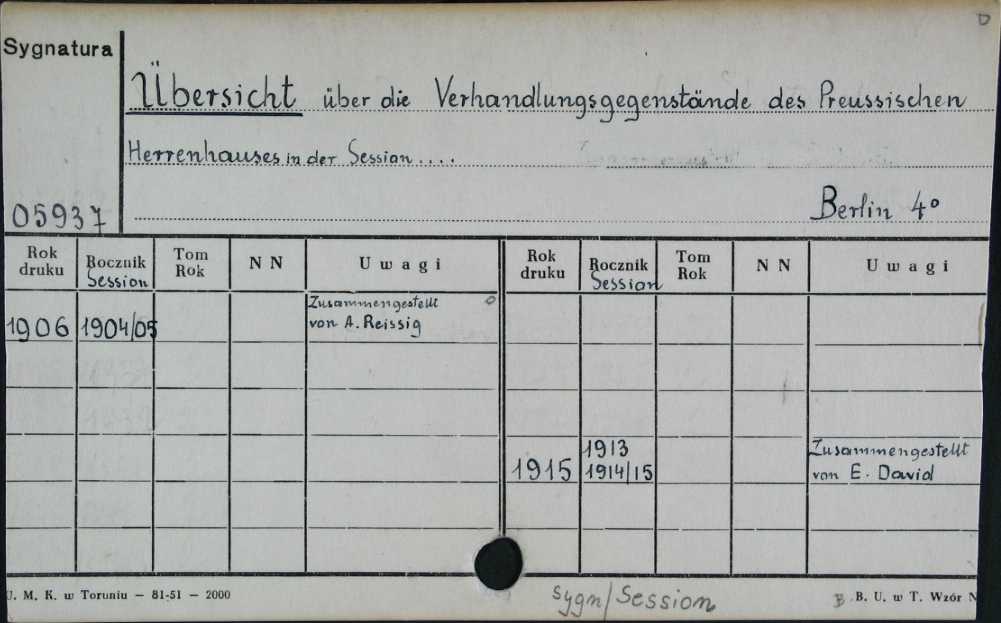 D
Sygnatura
Übersicht über die Verhandlungsgegenstände des Preussischen
Herrenhauses in der Session....
05937
Berlin 4°
Rok druku Rocznik Session Tom Rok N N Uwagi Rok druku Rocznik Session Tom Rok N N Uwagi
1906 1904/05 Zusammengestellt
von A. Reissig
1915 1913
1914/15 Zusammengestellt
von E. David
U. M. K. w Toruniu – 81-51 – 2000
sygn/Session
B B. U. w T. Wzór N